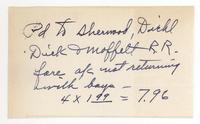 Pd to Sherwood, Diehl
Dick & Moffett R.R.
fare a/c not returning
with boys —
4 x 1.99 = 7.96